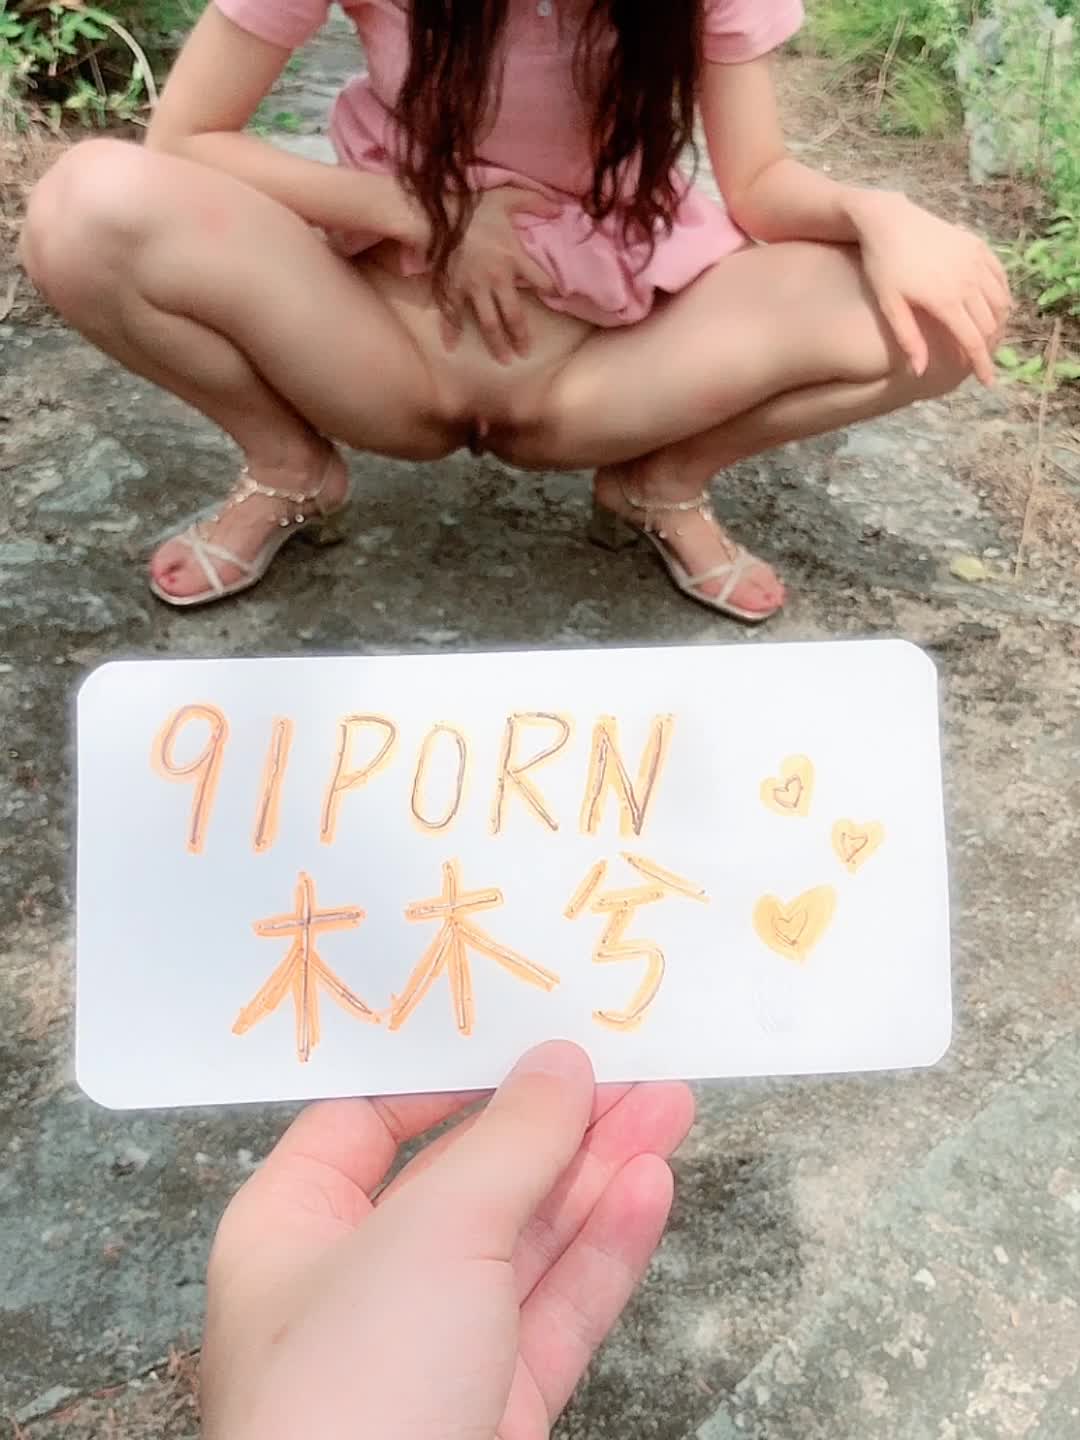 91PORN
木木兮